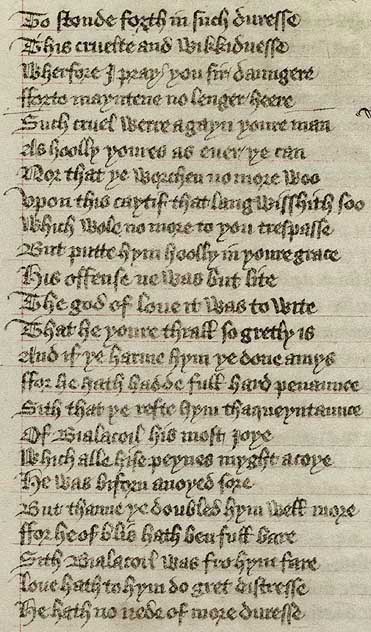 To stonde forth in such duresse
This cruelte and wikkidnesse
Wherfore I pray you sir daungere
fforto mayntene no lenger heere
Such cruel werre agayn youre man
As hoolly youres as euer ye can
Nor that ye worchen no more woo
Vpon this caytif that langwisshith soo
Which wole no more to you trespasse
But putte hym hoolly in youre grace
His offense ne was but lite
The god of loue it was to wite
That he youre thrall so gretly is
And if ye harme hym ye done amys
ffor he hath hadde full hard penaunce
Sith that ye refte hym thaqueyntaunce
Of Bialacoil his most ioye
Which alle hise peynes myght acoye
He was biforn anoyed sore
But thanne ye doubled hym well more
ffor he of blis hath ben full bare
Sith Bialacoil was fro hym fare
Loue hath to hym do gret distresse
He hath no nede of more duresse